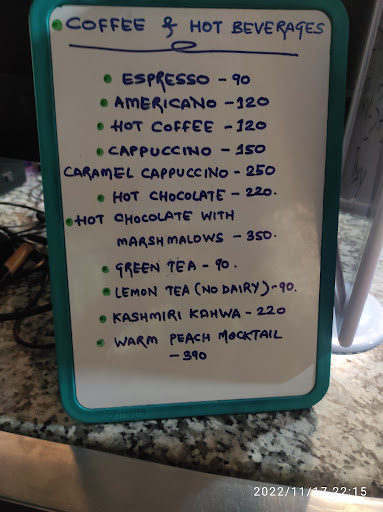 COFFEE & HOT BEVERAGES
ESPRESSO - 90
AMERICANO - 120
HOT COFFEE - 120
CAPPUCCINO - 150
CARAMEL CAPPUCCINO - 250
HOT CHOCOLATE - 220.
HOT CHOCOLATE WITH
MARSHMALOWS - 350.
GREEN TEA - 90.
LEMON TEA (NO DAIRY) - 90.
KASHMIRI KAHWA - 220
WARM PEACH MOCKTAIL
- 390
2022/11/17 22:15